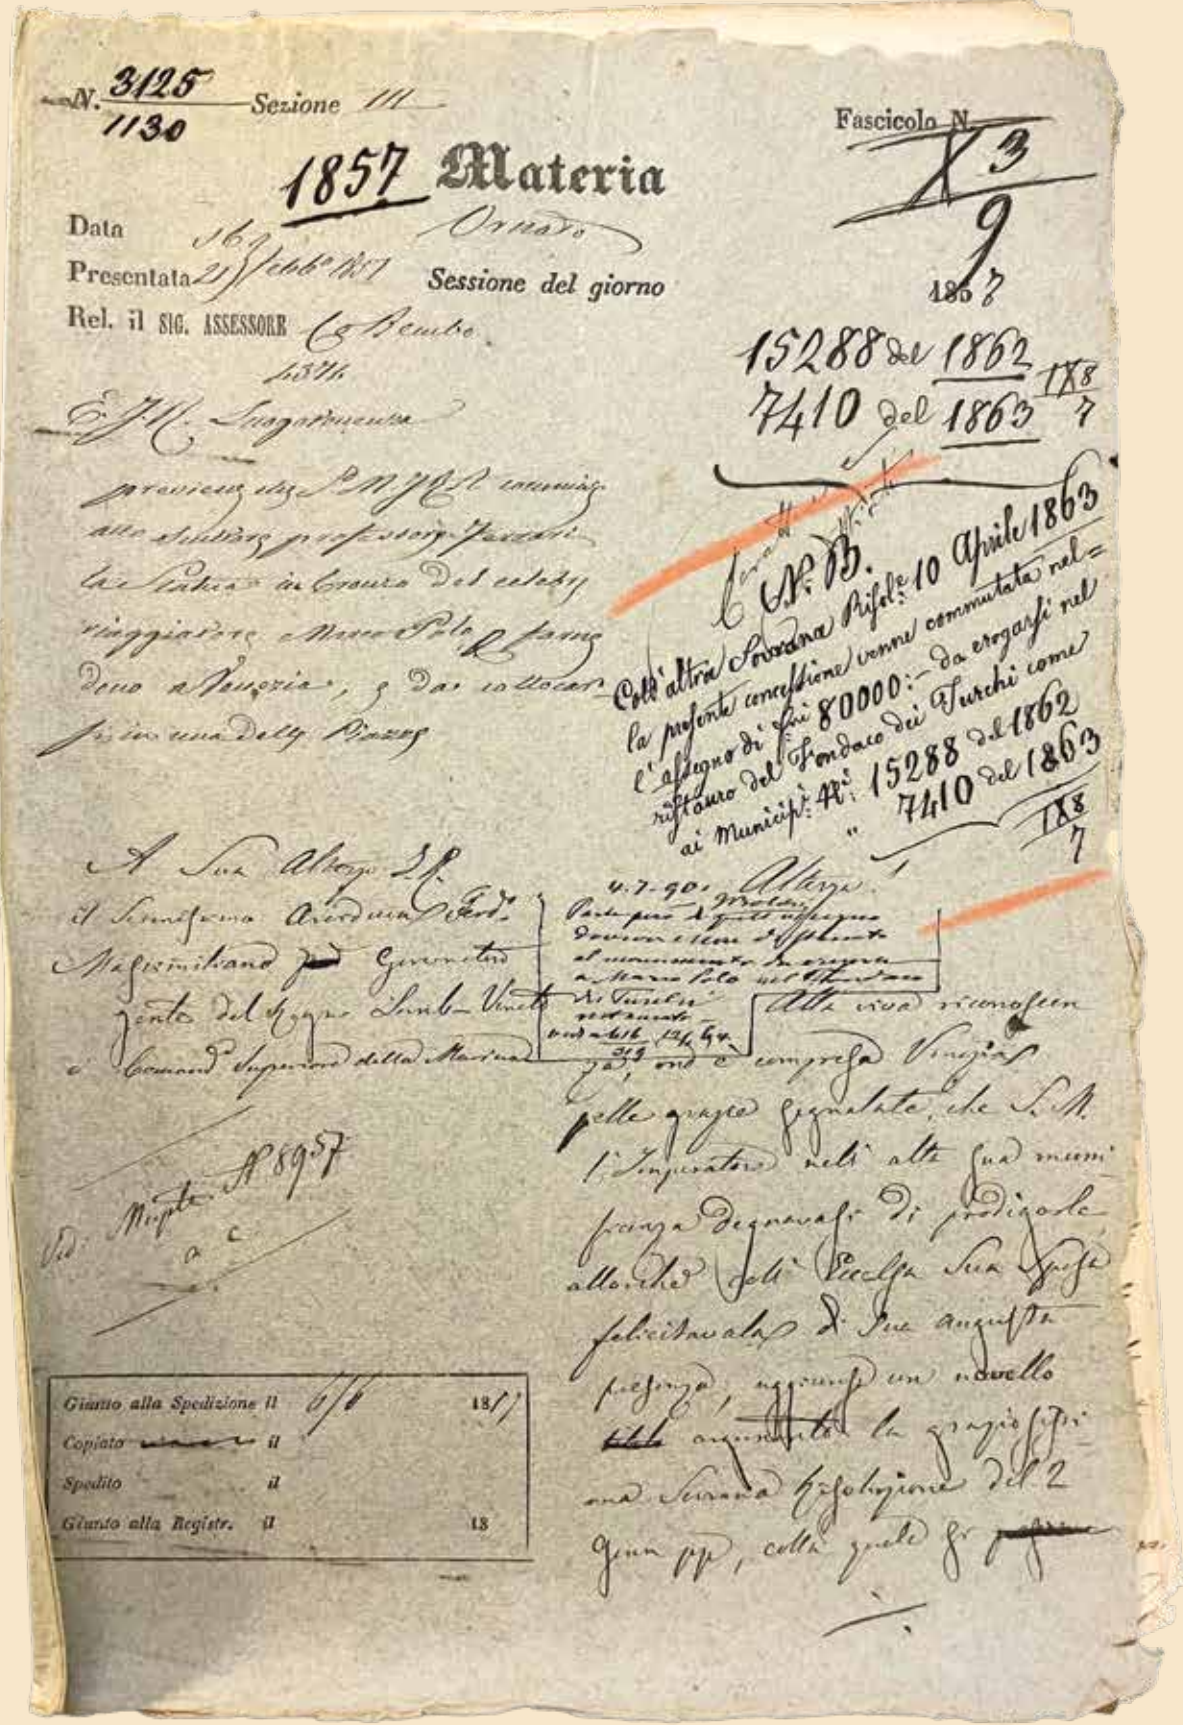 N. 3125
1130
Sezione III
Fascicolo N.
X 3
9
1857 Materia
Ornato
Data 16
Presentata 21 Febb.º 1857
Sessione del giorno
1857
Rel. il SIG. ASSESSORE Co Bembo
15288 del 1862
7410 del 1863
IX8
7
E. I. R. Luogotenenza
previene che S. M. I. R. A.
allo scultore professore Ferrari
la Statua in bronzo del celebre
viaggiatore Marco Polo, farne
dono a Venezia, e da collocar
si in una delle Piazze
N. B.
Coll'altra Sovrana Risol.e 10 Aprile 1863
la presente concessione venne commutata nel=
l'assegno di fni 80000:- da erogarsi nel
ristauro del Fondaco dei Turchi come
ai Municip.i N.i 15288 del 1862
" 7410 del 1863
IX8
7
A Sua Altezza I. R.
il Serenissimo Arciduca Ferd.º
Massimiliano Governatore
gente del Regno Lomb-Veneto
e Comand.e Superiore della Marina
4-7-90.
Parte però di quest'assegno
dovrà essere
al monumento
a Marco Polo nel Fondaco
dei Turchi
Altezza!
Alla viva riconoscen
za, ond'è compresa Venezia
pelle grazie segnalate, che S. M.
l'Imperatore nell'alta sua muni
ficenza degnavasi di prodigarle
allorché coll'Eccelsa Sua Sposa
felicitavala di Sua augusta
presenza, aggiunse un novello
argomento la graziosissi
ma Sovrana Risoluzione del 2
Genn pp, colla quale si
Ved: Munple N 8957
a c
Giunto alla Spedizione il 6/6 1857
Copiato il
Spedito il
Giunto alla Registr. il 18